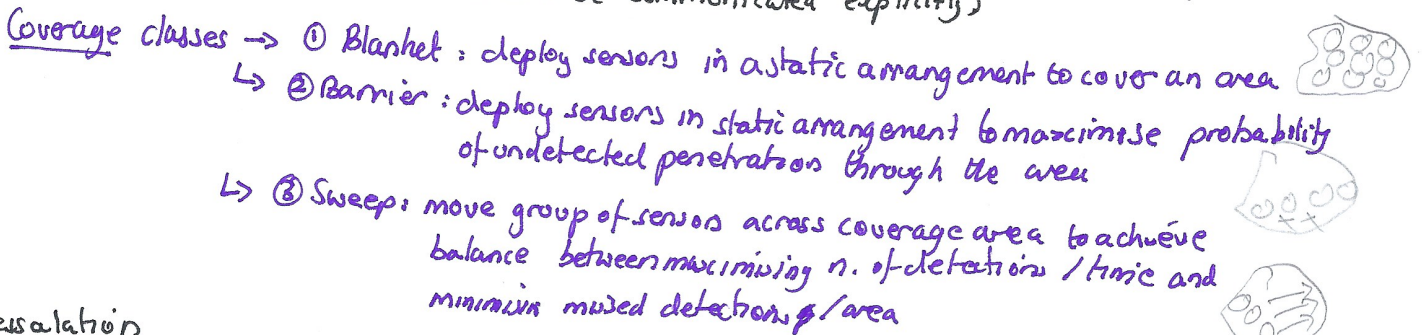 communicated explicitly)
Coverage classes → ① Blanket : deploy sensors in a static arrangement to cover an area
↳ ② Barrier : deploy sensors in static arrangement to maximise probability
of undetected penetration through the area
↳ ③ Sweep : move group of sensors across coverage area to achieve
balance between maximising n. of detections / time and
minimisin missed detections / area